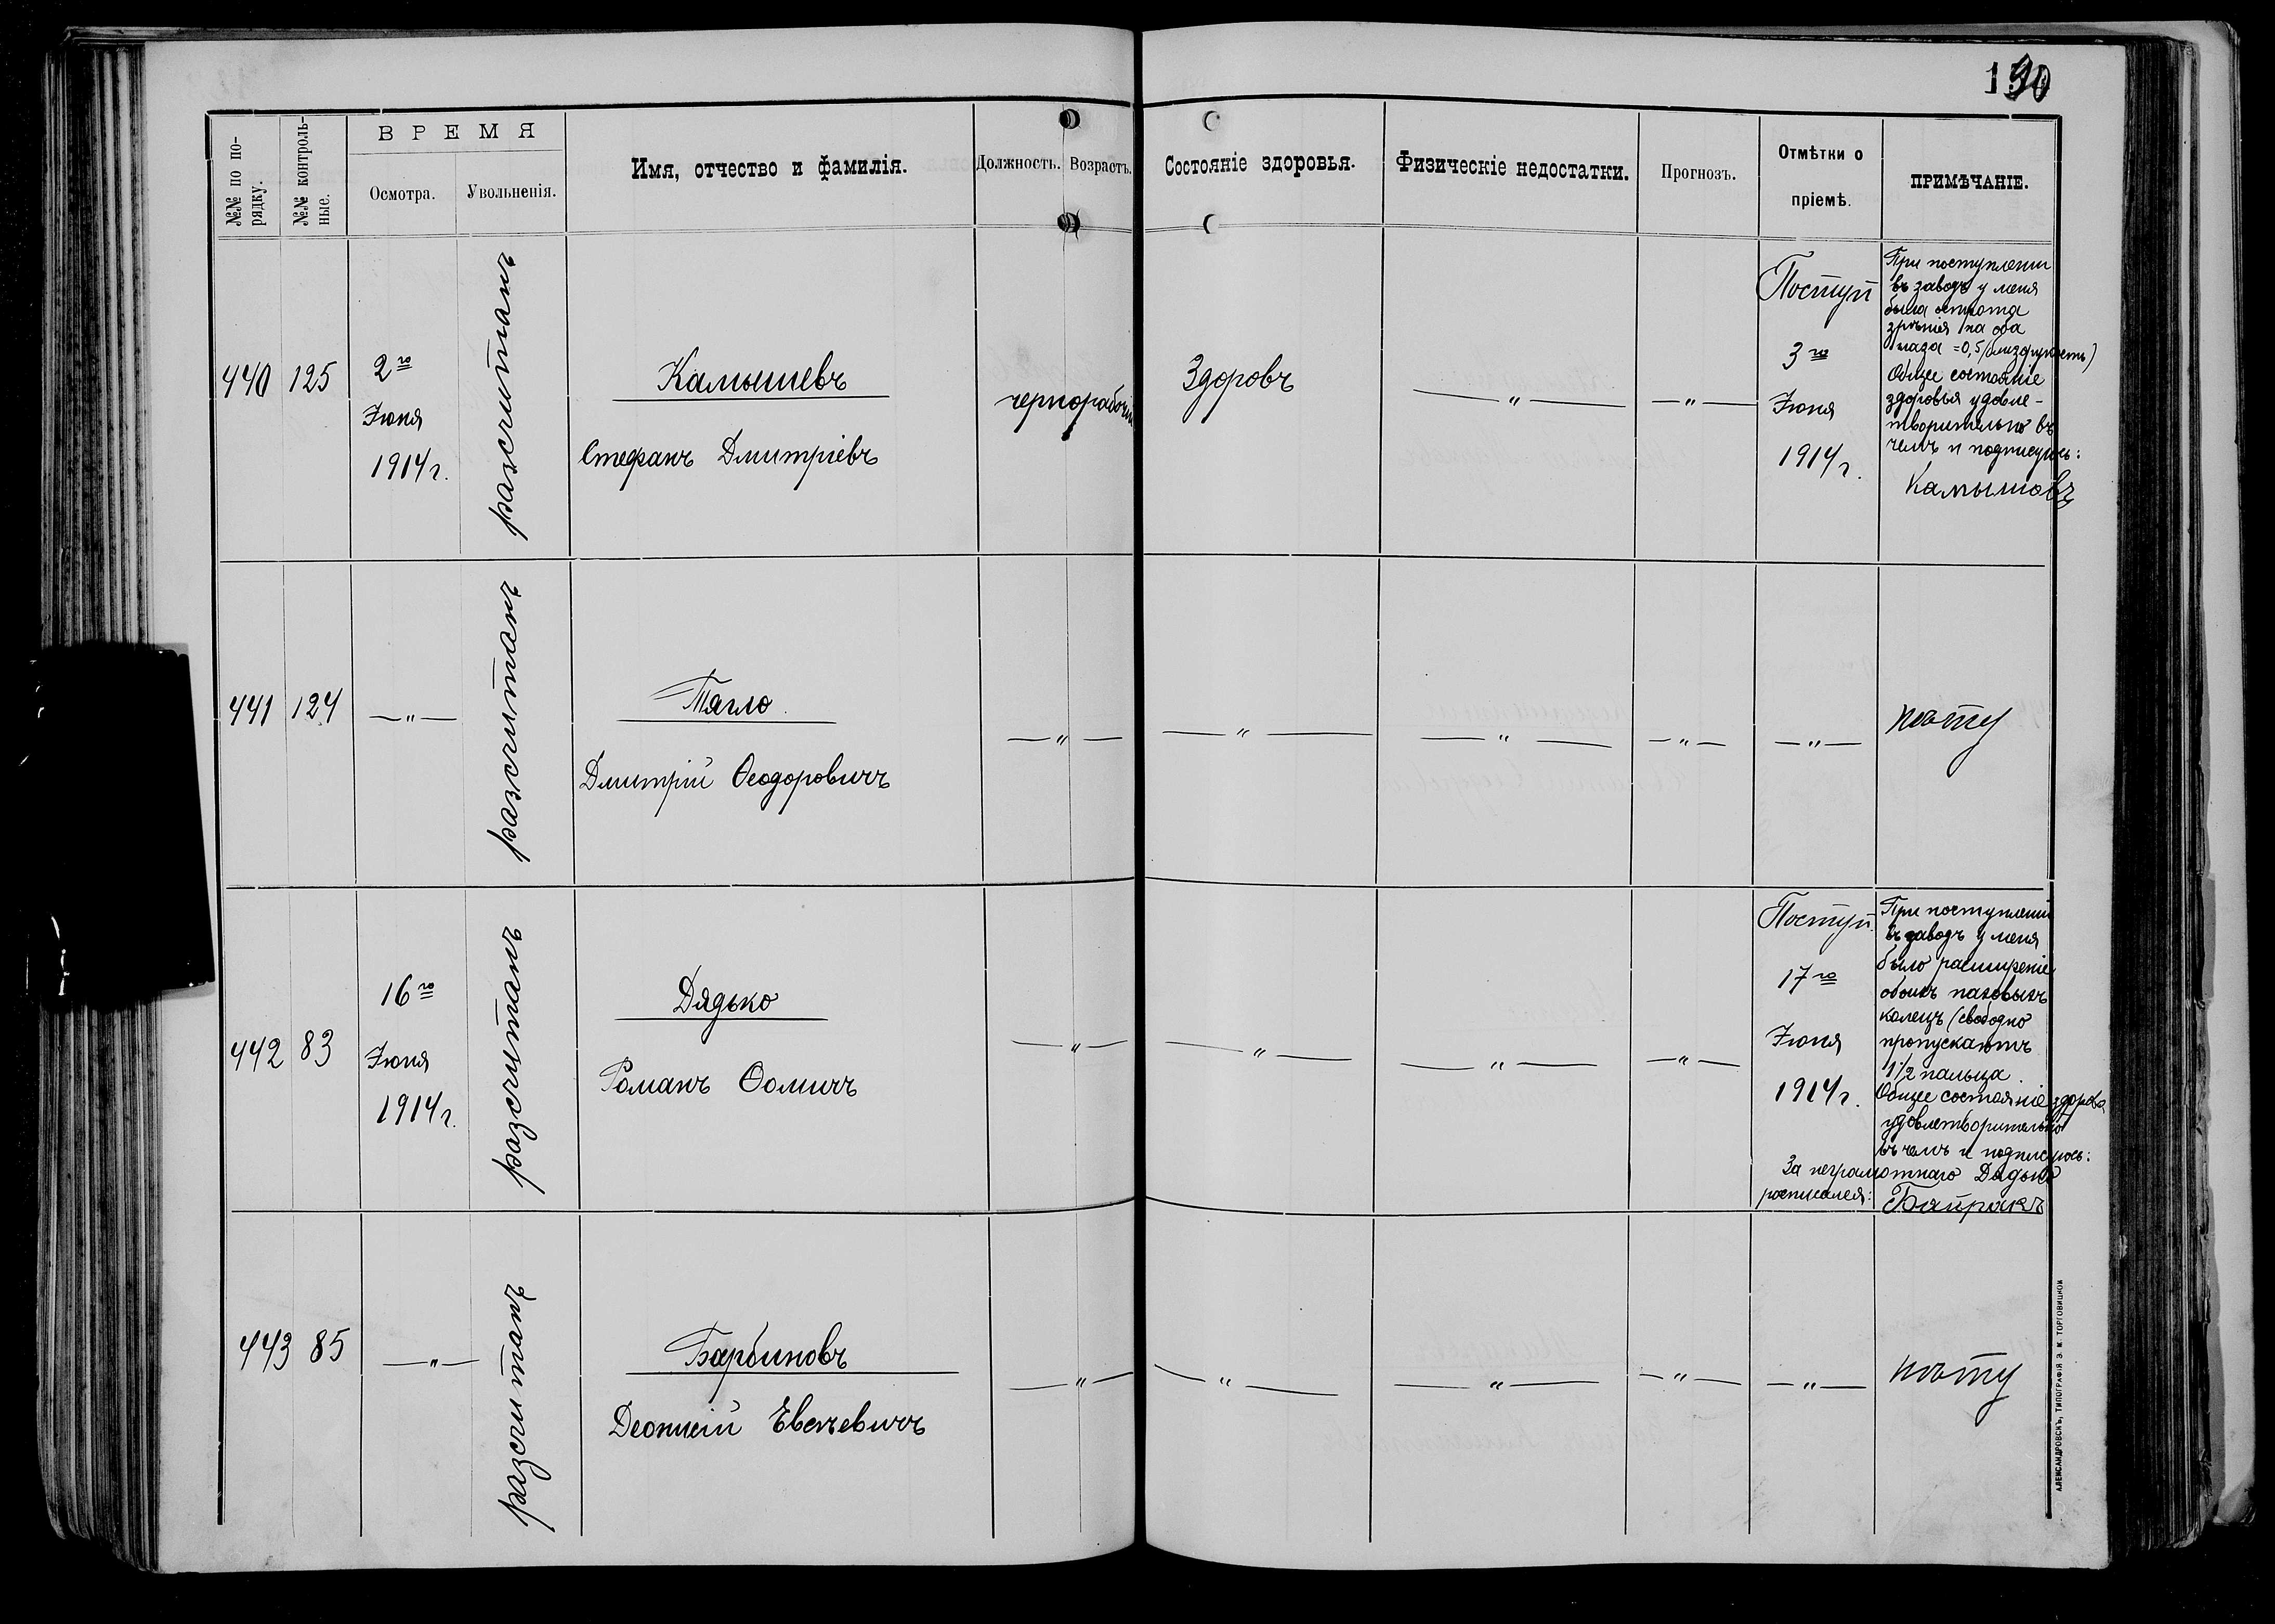 130
№№ по по-
рядку.
№№ контроль-
ные.
ВРЕМЯ
Осмотра.
Увольненія.
Имя, отчество и фамилія.
Должность.
Возрастъ.
Состояніе здоровья.
Физическіе недостатки.
Прогнозъ.
Отмѣтки о
пріемѣ.
ПРИМѢЧАНІЕ.
440
125
2го
Іюня
1914г.
разсчитанъ
Камышевъ
Стефанъ Дмитріевъ
чернорабочій
Здоровъ
— " —
— " —
Поступ
3го
Іюня
1914г.
При поступлении
въ заводъ у меня
была острота
зрѣнія на оба
глаза =0,5 (близорукость)
Общее состояніе
здоровья удовле-
творительно въ
чемъ и подписуюсь:
Камышовъ
441
124
— " —
разсчитанъ
Тягло
Дмитрій Ѳеодоровичъ
— " —
— " —
— " —
— " —
— " —
нѣту
442
83
16го
Іюня
1914г.
разсчитанъ
Дядько
Романъ Ѳомичъ
— " —
— " —
— " —
— " —
Поступ.
17го
Іюня
1914г.
При поступлении
въ заводъ у меня
было расширеніе
обоихъ паховыхъ
колецъ (свободно
пропускаютъ
1 1/2 пальца.
Общее состояніе здоровья
удовлетворительно
въ чемъ и подписуюсь:
За неграмотнаго Дядько
росписался:
Байракъ
443
85
— " —
разсчитанъ
Барбиновъ
Деонисій Евсѣевичъ
— " —
— " —
— " —
— " —
— " —
нѣту
АЛЕКСАНДРОВСКЪ, ТИПОГРАФІЯ Э. М. ТОРГОВИЦКОЙ